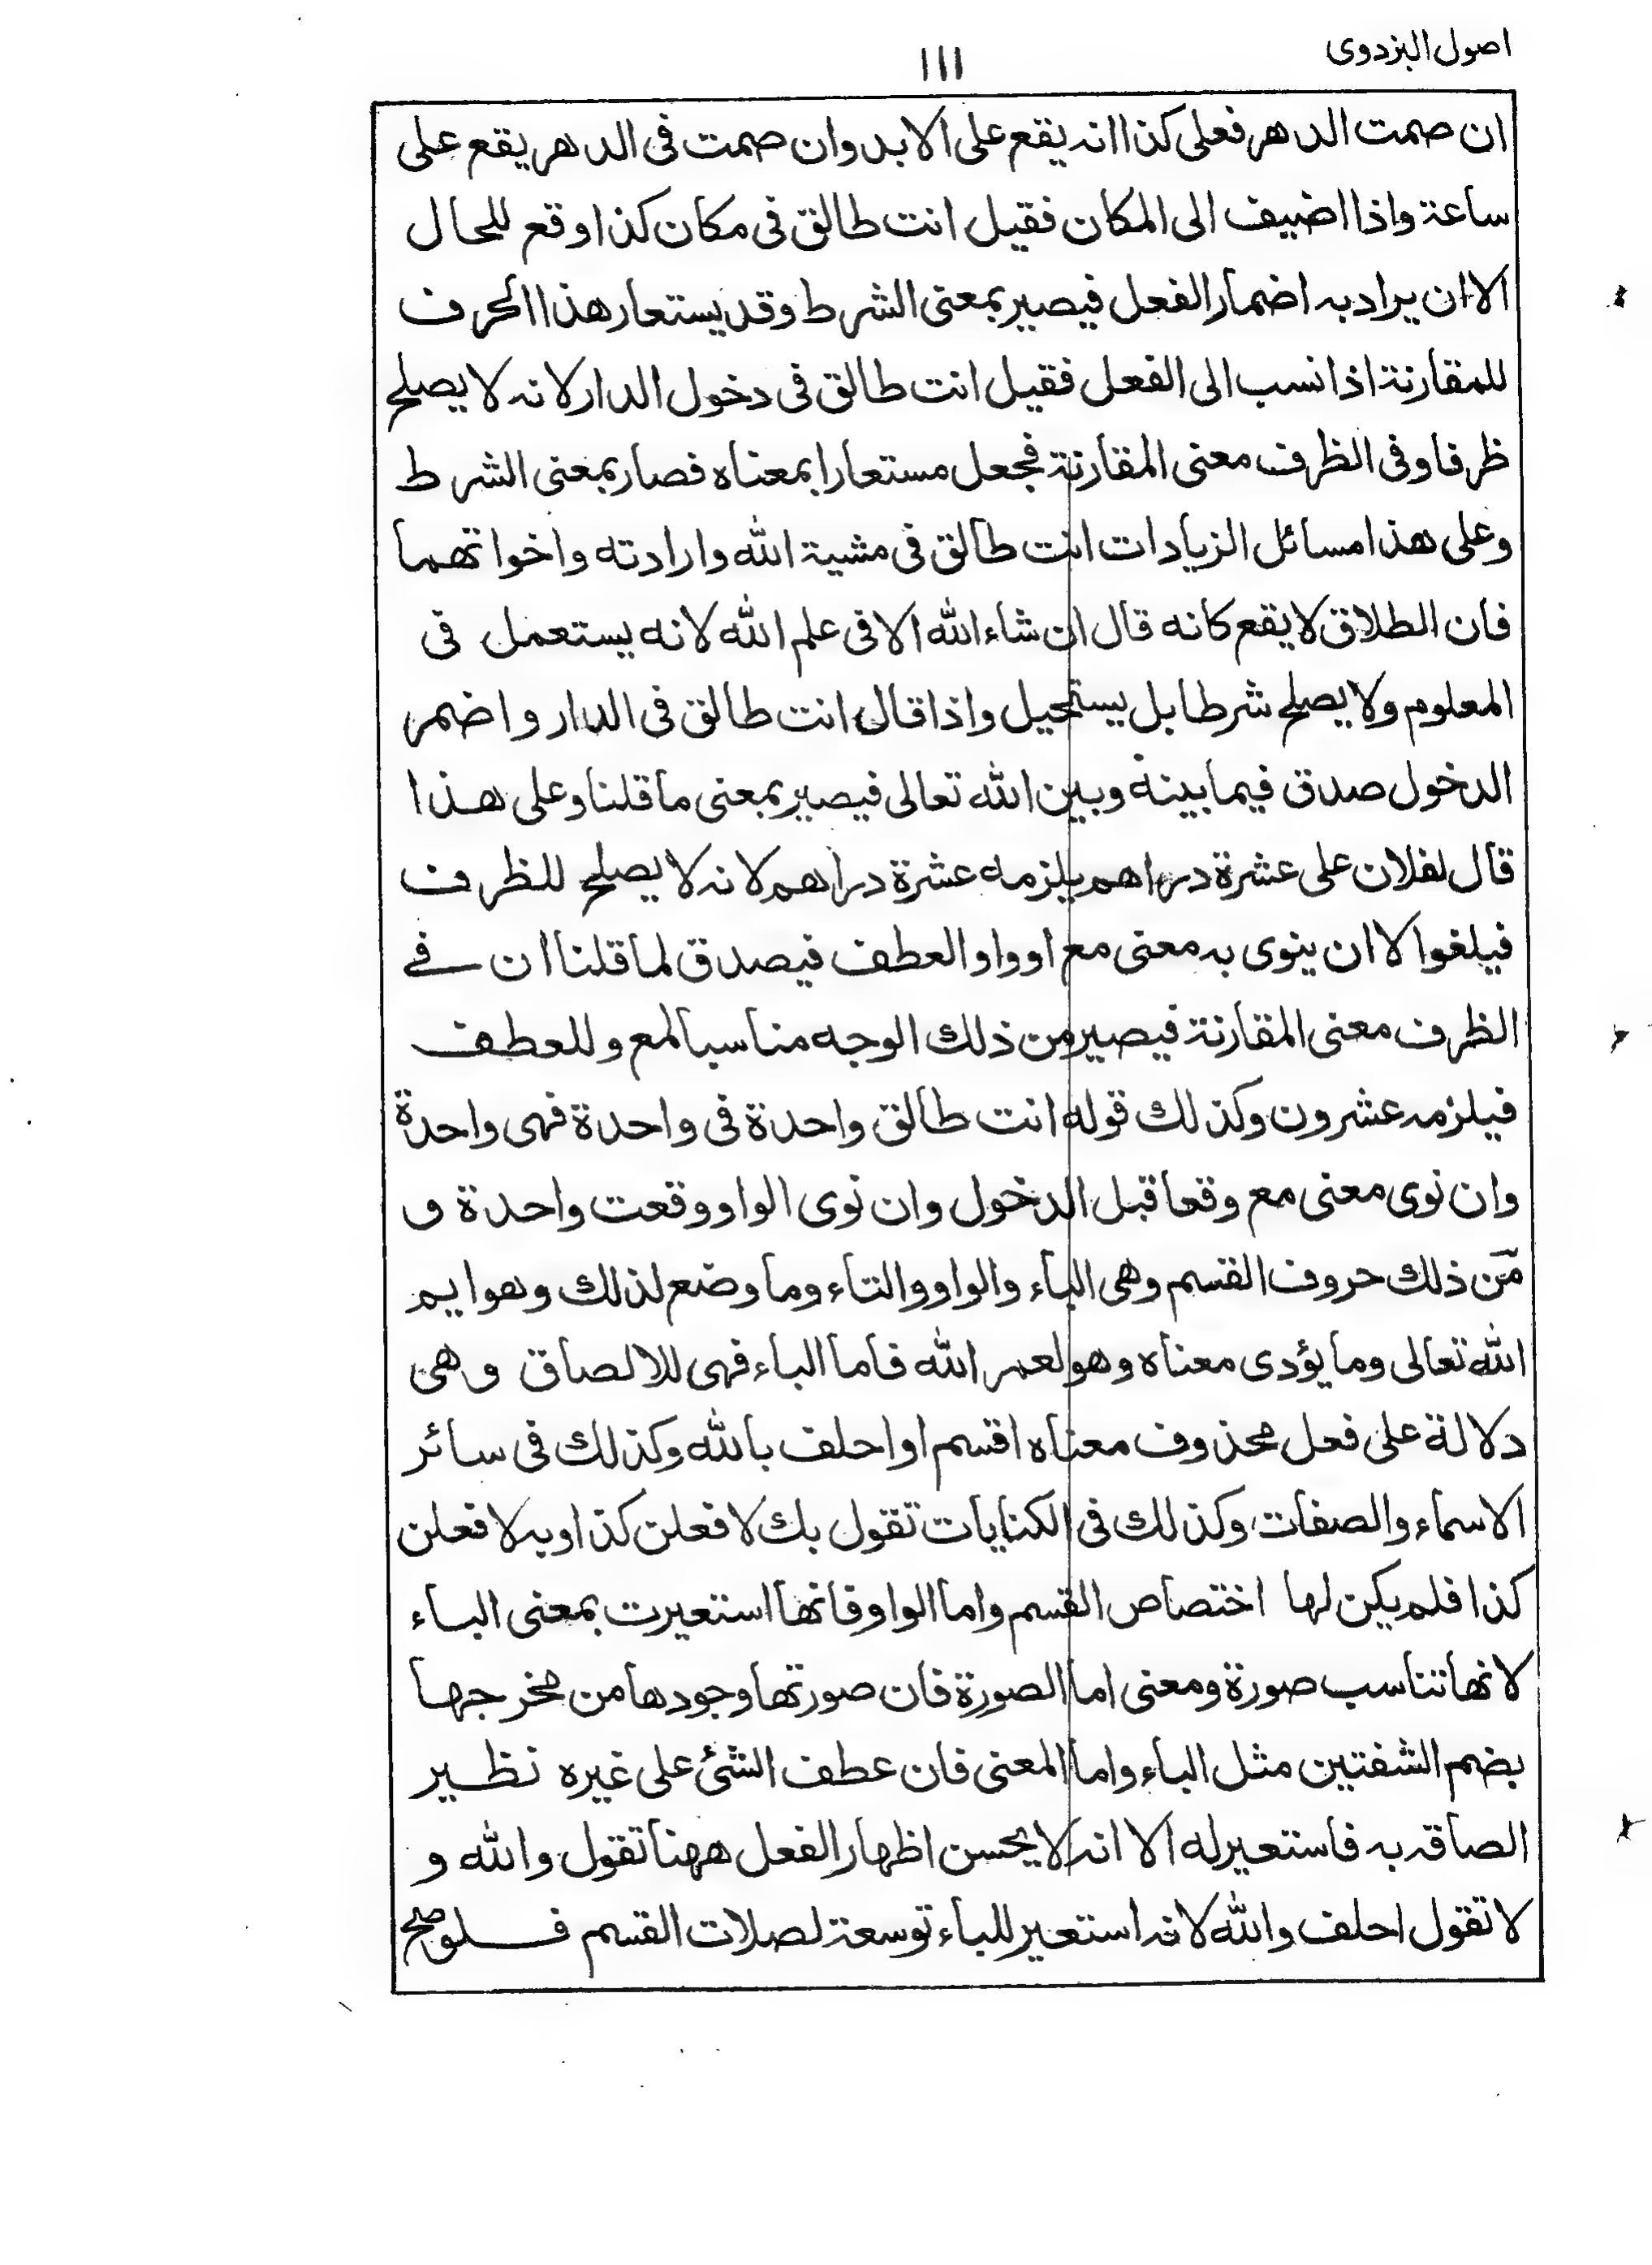 اصول البزدوى
١١١
ان صمت الدهر فعلى كذا انه يقع على الابد وان صمت فى الدهر يقع على
ساعة واذا اضيف الى المكان فقيل انت طالق فى مكان كذا وقع للحال
الا ان يراد به اضمار الفعل فيصير بمعنى الشرط وقد يستعار هذا الحرف
للمقارنة اذا نسب الى الفعل فقيل انت طالق فى دخول الدار لانه لا يصلح
ظرفا وفى الظرف معنى المقارنة فجعل مستعارا بمعناه فصار بمعنى الشرط
وعلى هذا مسائل الزيادات انت طالق فى مشية الله وارادته واخواتهما
فان الطلاق لا يقع كانه قال ان شاء الله الا فى علم الله لانه يستعمل فى
المعلوم ولا يصلح شرطا بل يستحيل واذا قال انت طالق فى الدار واضمر
الدخول صدق فيما بينه وبين الله تعالى فيصير بمعنى ما قلنا وعلى هذا
قال لفلان على عشرة دراهم يلزمه عشرة دراهم لانه لا يصلح للظرف
فيلغوا لا ان ينوى به معنى مع او واو العطف فيصدق لما قلنا ان فے
الظرف معنى المقارنة فيصير من ذلك الوجه مناسبا لمع وللعطف
فيلزمه عشرون وكذلك قوله انت طالق واحدة فى واحدة فهى واحدة
وان نوى معنى مع وقعا قبل الدخول وان نوى الواو وقعت واحدة و
من ذلك حروف القسم وهى الباء والواو والتاء وما وضع لذلك وهو ايم
الله تعالى وما يؤدى معناه وهو لعمر الله فاما الباء فهى للالصاق وهى
دلالة على فعل محذوف معناه اقسم او احلف بالله وكذلك فى سائر
الاسماء والصفات وكذلك فى الكنايات تقول بك لافعلن كذا او به لافعلن
كذا فلم يكن لها اختصاص القسم واما الواو فانها استعيرت بمعنى الباء
لانها تناسب صورة ومعنى اما الصورة فان صورتها وجودها من مخرجها
بضم الشفتين مثل الباء واما المعنى فان عطف الشئ على غيره نظير
الصاقه به فاستعير له الا انه لا يحسن اظهار الفعل ههنا تقول والله و
لا تقول احلف والله لانه استعير للباء توسعة لصلات القسم فلو صح